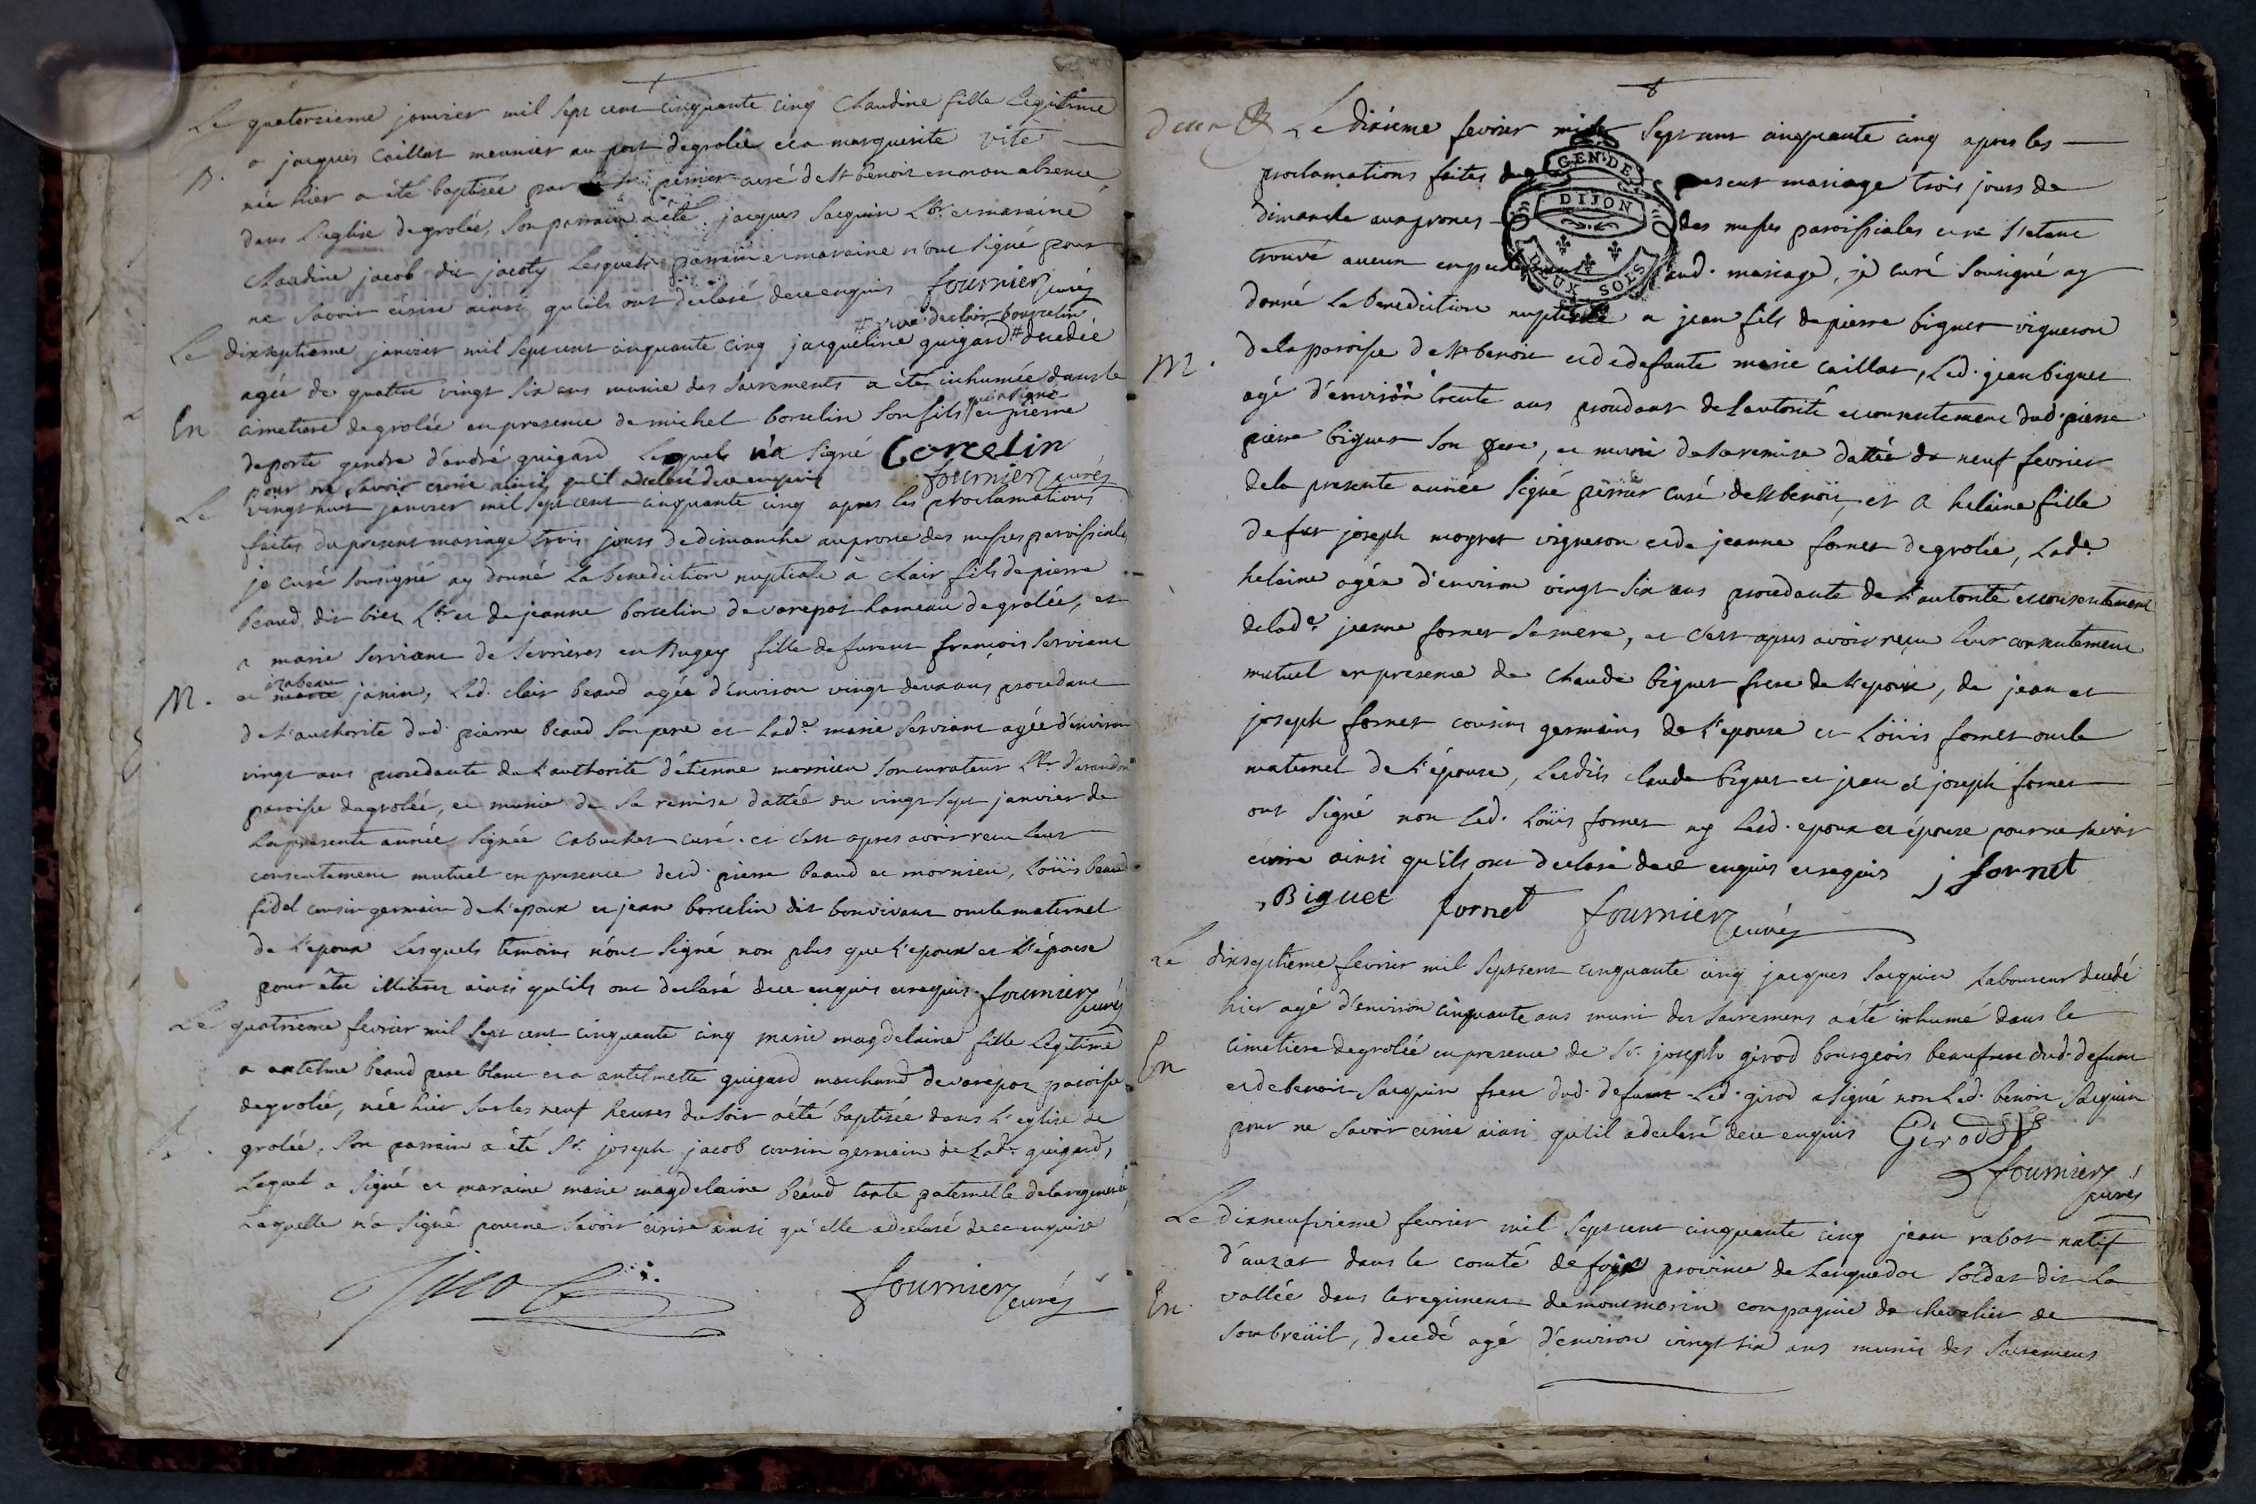 Le quatorzieme janvier mil sept cent cinquante cinq Claudine fille legitime
B. a jacques Caillat meunier au port de grolée et a marguerite vite
née hier a été baptisée par perrier curé de St benoit en mon absence
dans l'eglise de grolée, son parrain a été jacques sacquin Lbr et maraine
Claudine jacob dit jacoty lesquels parrain et maraine n'ont signé pour
ne savoir ecrire ainsi qu'ils ont declaré de ce enquis fournier curé
# veuve de clair borcelin
Le dixseptieme janvier mil sept cent cinquante cinq jacqueline guigard # decedée
agée de quattre vingt six ans munie des sacrements a été inhumée dans le
qui a signé
En cimetiere de grolée en presence de michel borcelin son fils et pierre
deporte gendre d'andré guigard lequel n'a signé Borcelin
pour ne savoir ecrire ainsi qu'il a declaré de ce enquis fournier curé
Le vingt huit janvier mil sept cent cinquante cinq apres les proclamations
faites du present mariage trois jours de dimanche au prone des messes paroissiales
je curé sousigné ay donné la benediction nuptiale à clair fils de pierre
beaud dit biez Lbr et de jeanne borcelin de varepot hameau de grolée, et
a marie serviant de serrières en Bugey fille de furent françois serviant
izabeau
M. et marie janin, led. clair beaud agée d'environ vingt deux ans procedant
de l'authorite dud. pierre beaud son pere et lad.e marie serviant agée d'environ
vingt ans procedante de l'authorité d'étienne mornieu son curateur Lbr
paroisse de grolée, et munie de sa remise dattée du vingt sept janvier de
la presente année signée Cabuchet curé. et c'est apres avoir recu leur
consentement mutuel en presence desd. pierre beaud et mornieu, Loüis beaud
fidel cousin germain de l'epoux et jean borcelin dit bonvivant oncle maternel
de l'epoux lesquels temoins n'ont signé non plus que l'epoux et l'épouse
pour être illitérés ainsi qu'ils ont declaré de ce enquis et requis. fournier curé
Le quatrieme fevrier mil sept cent cinquante cinq marie magdelaine fille legitime
a antelme beaud pere blanc et a antelmette guigard marchand de varepoz paroisse
de grolée, née hier sur les neuf heures du soir a été baptisée dans l'eglise de
B. grolée, son parrain a été Sr. joseph jacob cousin germain de lad.e guigard,
lequel a signé et maraine marie magdelaine beaud tante paternelle de la
laquelle n'a signé pour ne savoir ecrire ainsi qu'elle a declaré de ce enquise
Jacob fournier curé
deux
Le dixième fevrier mil sept cent cinquante cinq apres les
proclamations faites du present mariage trois jours de
dimanche aux prones des messes paroissiales et ne s'etant
trouvé aucun aud. mariage, je curé sousigné ay
GEN. DE
DIJON
DEUX SOLS
donné la benediction nuptiale a jean fils de pierre biguet vigneron
M. de la paroisse de St benoit et de defunte marie caillat, led. jean biguet
agé d'environ trente ans procedant de l'autorité et consentement dud. pierre
pierre biguet son pere, et muni de sa remise dattée du neuf fevrier
de la presente année signé perrier curé de St benoit, et a helaine fille
de fut joseph mogret vigneron et de jeanne fornet de grolée, lad.e
helaine agée d'environ vingt six ans procedante de l'autorité et consentement
de lad.e jeanne fornet sa mere, et c'est apres avoir recu leur consentement
mutuel en presence de Claude biguet frere de l'epoux, de jean et
joseph fornet cousins germains de l'epouse et Loüis fornet oncle
maternel de l'épouse, lesdits claude biguet et jean et joseph fornet
ont signé non led. Loüis fornet ny lesd. epoux et épouse pour ne savoir
ecrire ainsi qu'ils ont declaré de ce enquis et requis j fornet
Biguet fornet fournier curé
Le dixseptieme fevrier mil sept cent cinquante cinq jacques sacquin laboureur decedé
hier agé d'environ cinquante ans muni des sacremens a été inhumé dans le
En cimetiere de grolée en presence de Sr. joseph girod bourgeois beaufrere dud. defunt
et de benoit sacquin frere dud. defunt led. girod a signé non led. benoit sacquin
pour ne savoir ecrire ainsi qu'il a declaré de ce enquis Girod
fournier curé
Le dixneufvieme fevrier mil sept cent cinquante cinq jean rabot natif
d'auzat dans le comté de foix province de Languedoc soldat dit la
En. vallée dans le regiment de montmorin compagnie du chevalier de
sombreüil, decedé agé d'environ vingt six ans munis des sacremens